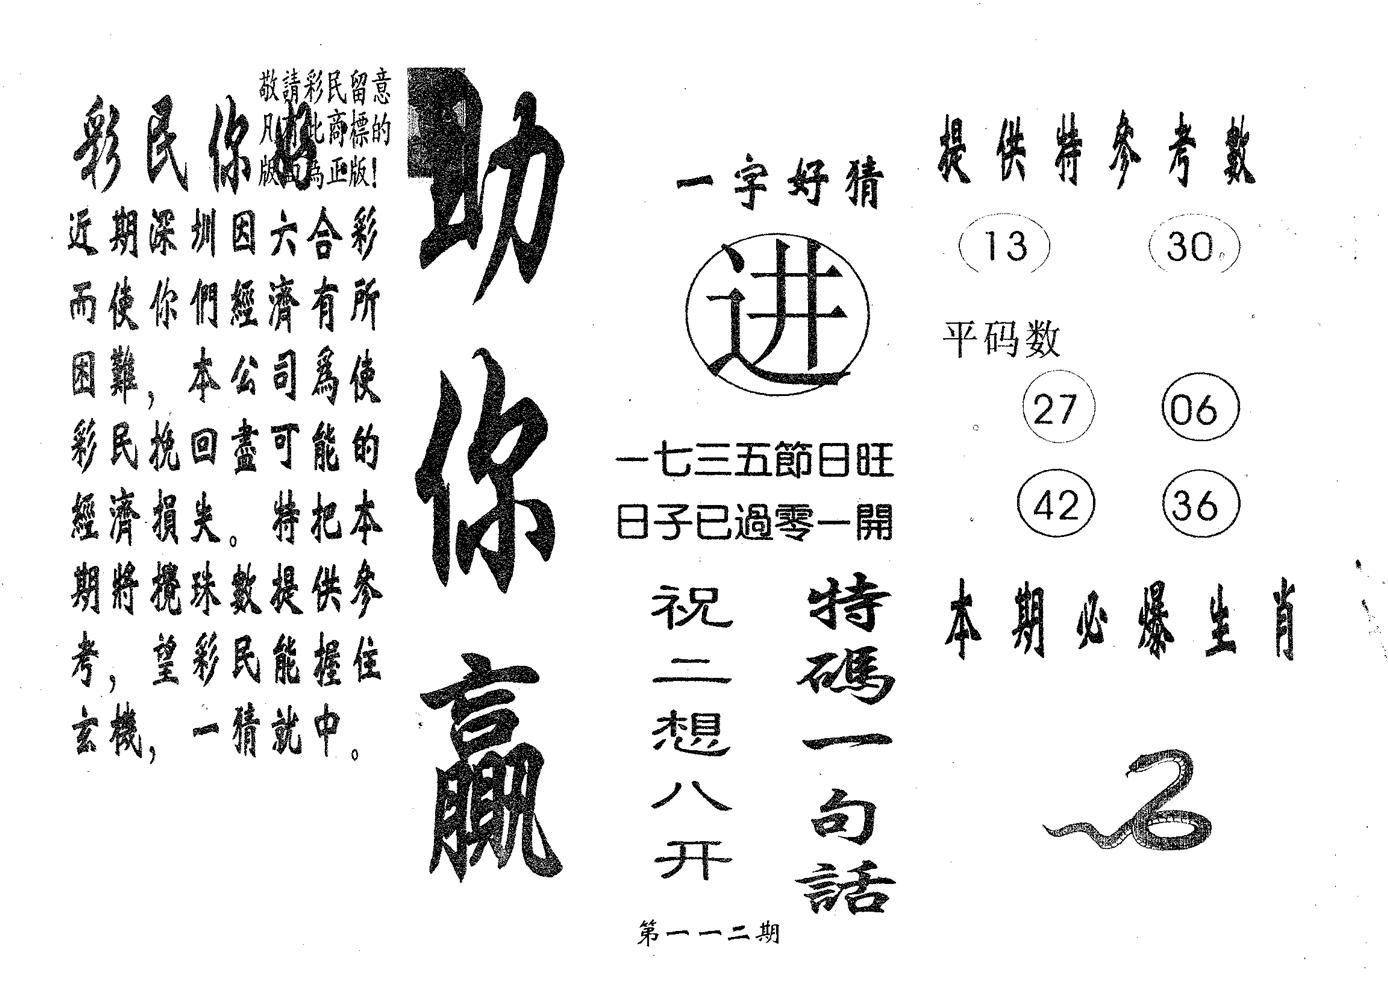 敬請彩民留意
凡有此商標的
版面為正版!
彩民你好
近期深圳因六合彩
而使你們經濟有所
困難，本公司爲使
彩民挽回盡可能的
經濟損失。特把本
期將攪珠數提供參
考，望彩民能握住
玄機，一猜就中。
助你贏
一字好猜
进
一七三五節日旺
日子已過零一開
特碼一句話
祝二想八开
第一一二期
提供特参考數
13 30
平码数
27 06
42 36
本期必爆生肖